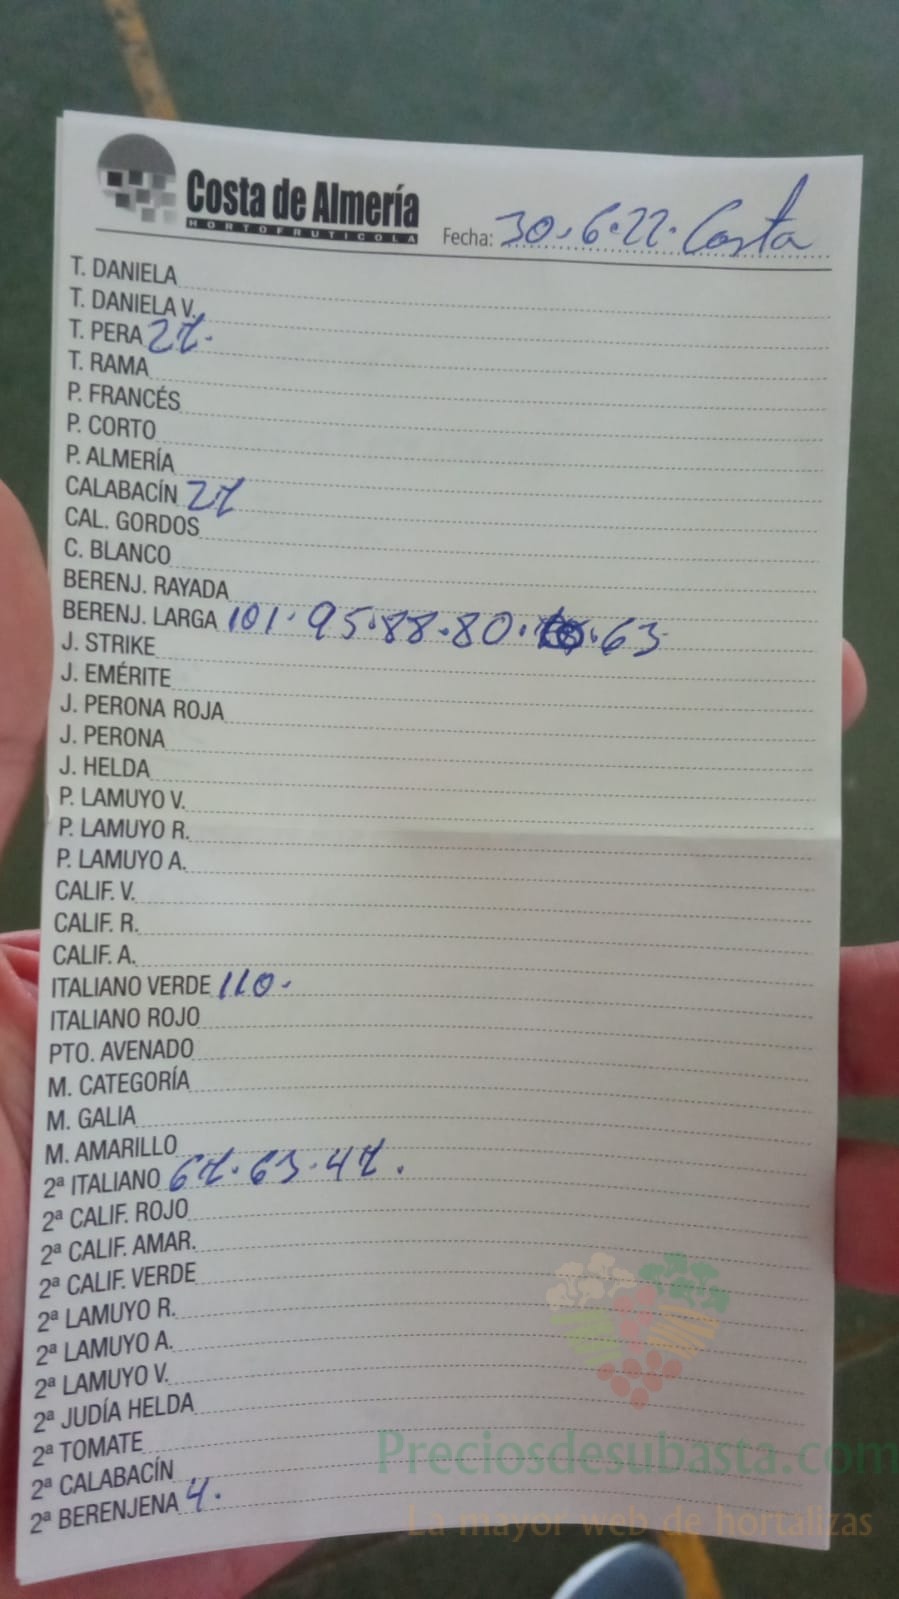 Costa de Almería
HORTOFRUTICOLA
Fecha: 30.6.22. Costa
T. DANIELA
T. DANIELA V.
T. PERA 27.
T. RAMA
P. FRANCÉS
P. CORTO
P. ALMERÍA
CALABACÍN 27
CAL. GORDOS
C. BLANCO
BERENJ. RAYADA
BERENJ. LARGA 101.95.88.80. .63
J. STRIKE
J. EMÉRITE
J. PERONA ROJA
J. PERONA
J. HELDA
P. LAMUYO V.
P. LAMUYO R.
P. LAMUYO A.
CALIF. V.
CALIF. R.
CALIF. A.
ITALIANO VERDE 110.
ITALIANO ROJO
PTO. AVENADO
M. CATEGORÍA
M. GALIA
M. AMARILLO
2ª ITALIANO 67.63.47.
2ª CALIF. ROJO
2ª CALIF. AMAR.
2ª CALIF. VERDE
2ª LAMUYO R.
2ª LAMUYO A.
2ª LAMUYO V.
2ª JUDÍA HELDA
2ª TOMATE
2ª CALABACÍN
2ª BERENJENA 4.
Preciosdesubasta.com
La mayor web de hortalizas